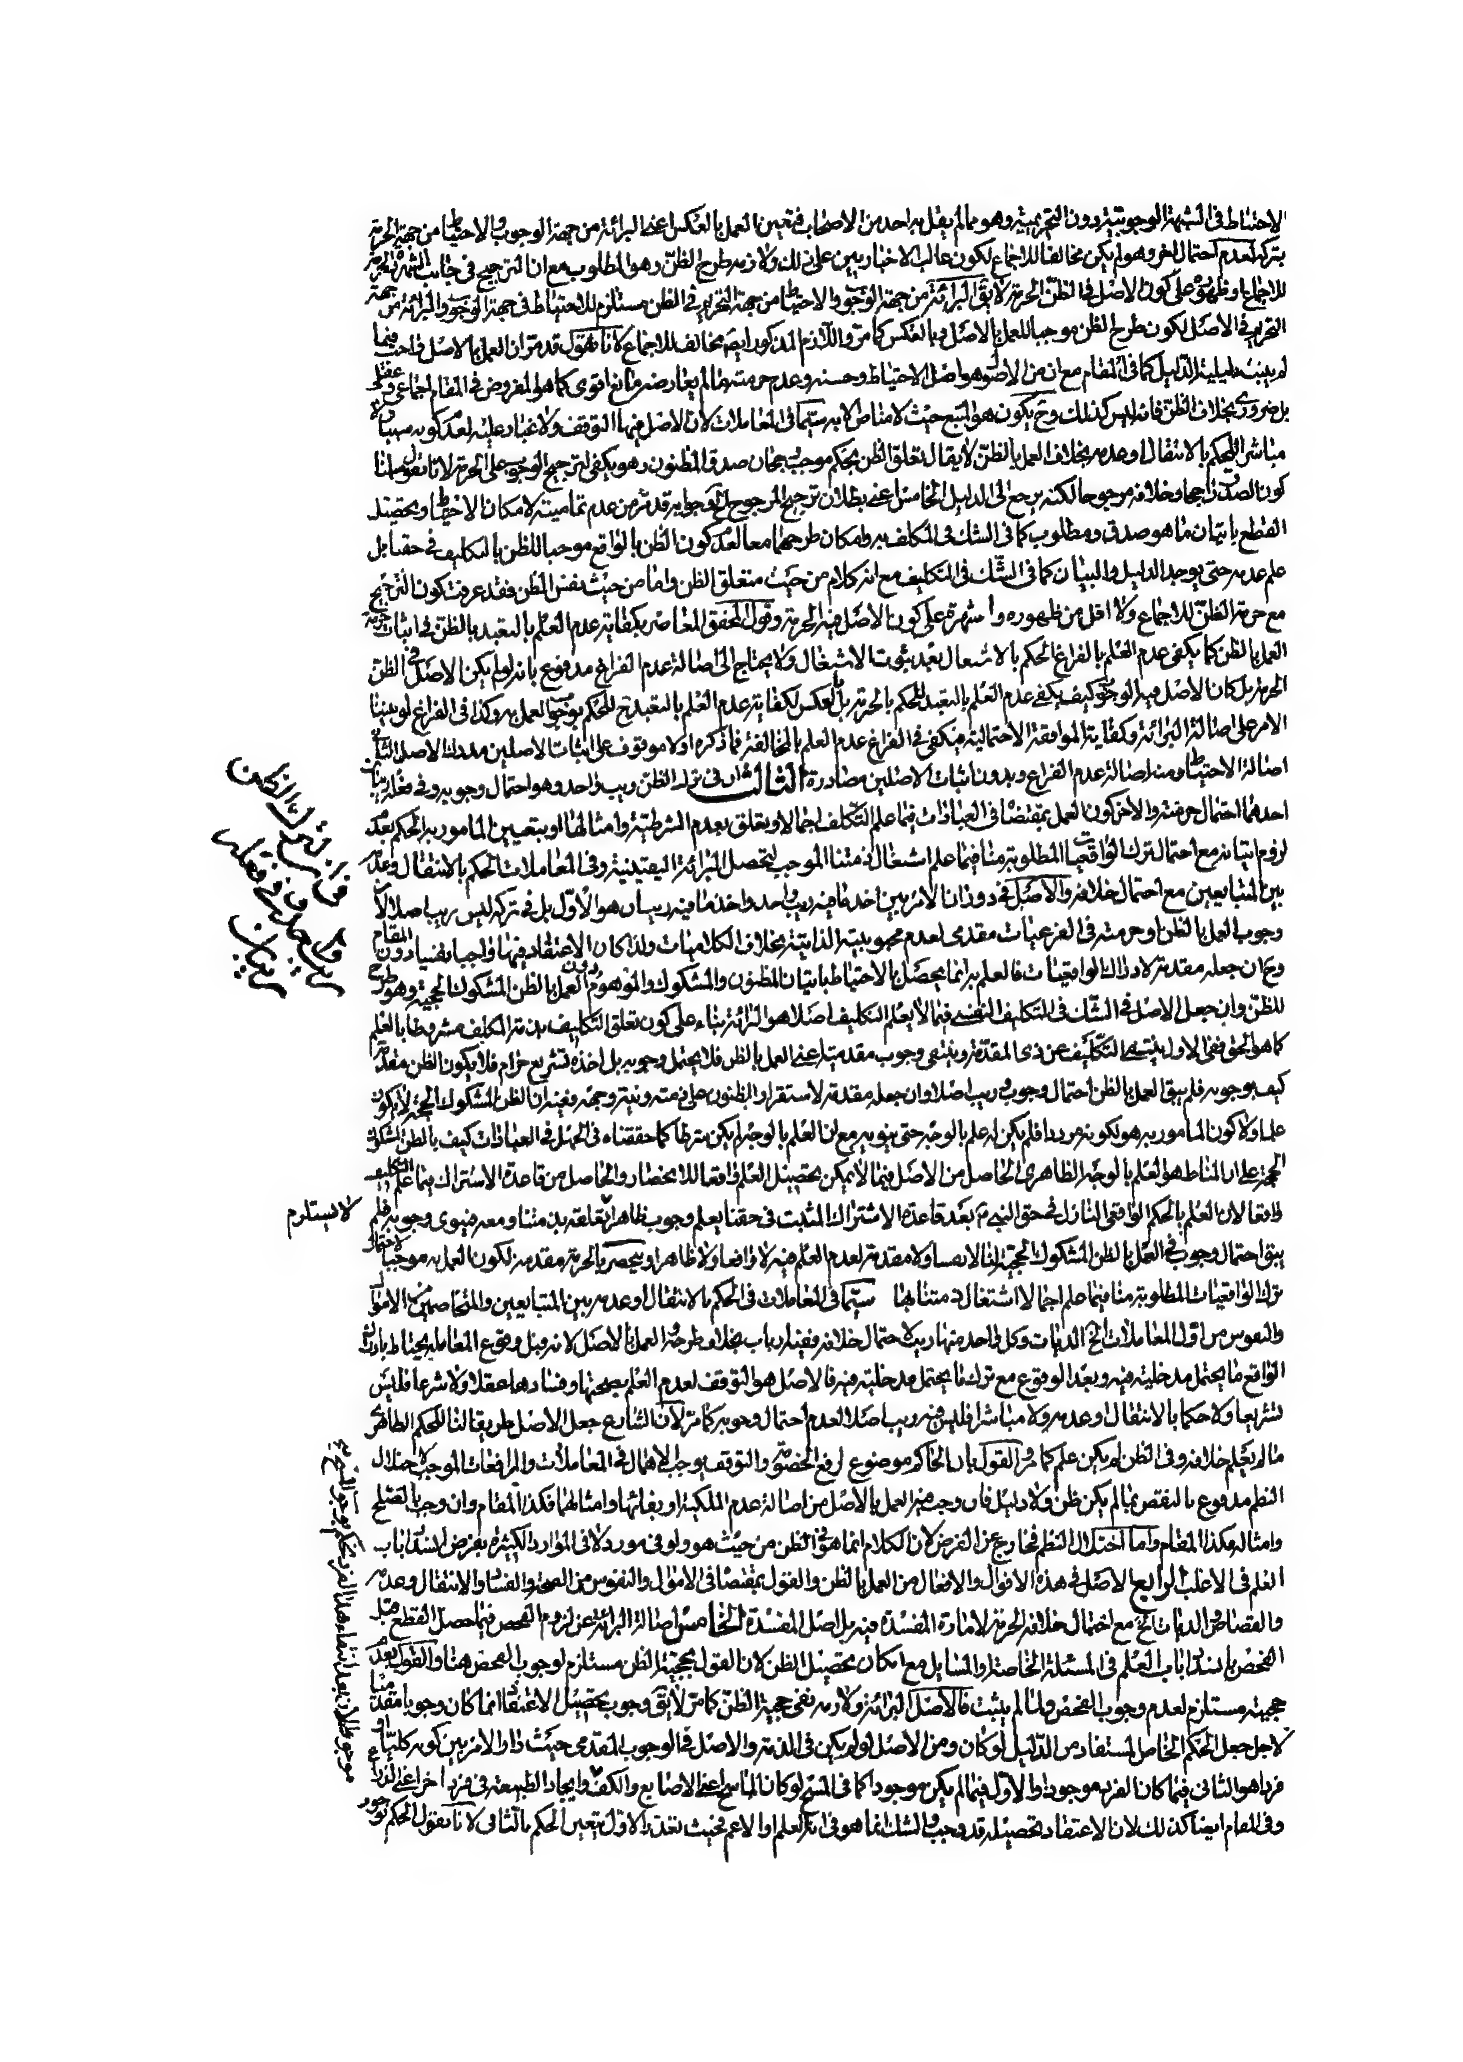 الاحتياط فى الشبهة الوجوبية دون التحريمية وهو مما لم يقل به احد من الاصحاب فتعين العمل بالعكس اعنى البرائة من جهة الوجوب والاحتياط من جهة الحرمة
بتركه لعدم احتمال اخر وهو لم يكن مخالفا للاجماع لكون غالب الاخباريين على ذلك ولازمه طرح الظن وهو المطلوب مع ان الترجيح فى جانب الشهرة
للاجماع او ظهوره على كون الاصل فى الظن الحرمة لا يق البرائة من جهة الوجوب والاحتياط من جهة التحريم فى الظن مستلزم للاحتياط فى جهة الوجوب والبرائة من جهة
التحريم فى الاصل لكون طرح الظن موجبا للعمل بالاصل وبالعكس كما مر واللازم المذكور ايضا مخالف للاجماع لانا نقول قد مر ان العمل بالاصل واجب فيما
لم يثبت دليلية الدليل كما فى المقام مع ان من الاصو هو اصل الاحتياط وحسنه وعدم حرمته ما لم يعارضه مانع اقوى كما هو المفروض فى المقام اجماعى و عقلى
بل ضرورى بخلاف الظن فانه ليس كذلك وح يكون هو المتبع حيث لا مناص الا به سيما فى المعاملات لان الاصل فيها التوقف ولا غبار عليه لعدم كونه سببا ولا
مباشر الحكم بالانتقال او عدمه بخلاف العمل بالظن لا يقال تعلق الظن بحكم موجب رجحان صدق المظنون وهو يكفى لترجيح الوجوب على الحرمة لانا نقول سلمنا
كون الصدق راجحا وخلافه مرجوحا لكنه يرجع الى الدليل الخامس اعنى بطلان ترجيح المرجوح وجوابه قد مر من عدم تماميته لامكان الاحتياط و تحصيل
القطع باتيان ما هو صدق ومطلوب كما فى الشك فى المكلف به وامكان طرحهما معا لعدم كون الظن بالواقع موجبا للظن بالتكليف فى حقنا بل
علم عدمه حتى يوجد الدليل والبيان كما فى الشك فى التكليف مع انه كلام من حيث متعلق الظن واما من حيث نفس الظن فقد عرفت كون الترجيح
مع حرمة الظن للاجماع ولا اقل من ظهوره و شهرة على كون الاصل فيه الحرمة وقول المحقق المعاصر بكفاية عدم العلم بالتعبد بالظن فى اثبات حرمة
العمل بالظن كما يكفى عدم العلم بالفراغ الحكم بالاشتغال بعد ثبوت الاشتغال ولا يحتاج الى اصالة عدم الفراغ مدفوع بانه لو لم يكن الاصل فى الظن
الحرمة بل كان الاصل فيه الوجوب كيف يكفى عدم العلم بالتعبد للحكم بالحرمة بل بالعكس لكفاية عدم العلم بالتعبد ح للحكم بوجوب العمل به وكذا فى الفراغ لو بنينا
الامر على اصالة البرائة وكفاية الموافقة الاحتمالية فيكفى فى الفراغ عدم العلم بالمخالفة فما ذكره اولا موقوف على اثبات الاصلين
اصالة الاحتياط ومن اصالة عدم الفراغ وبدون اثبات الاصلين مصادرة الثالث ان فى ترك الظن ريب واحد وهو احتمال وجوبه وفى فعله ريبان
احدهما احتمال حرمته والاخر كون العمل بمقتضاه فى العبادات فيما علم التكليف اجمالا وتعلق بعدم الشرطية وامثالها او بتعيين المامور به الحكم بعدم
لزوم اتيانه مع احتمال ترك الواقعيا المطلوبة منا فيما علم اشتغال ذمتنا الموجب لتحصيل البرائة اليقينية وفى المعاملات الحكم بالانتقال وعدمه
بين المتبايعين مع احتمال خلافه والاصل فى دوران الامر بين اخذ ما فيه ريب واحد واخذ ما فيه ريبان هو الاول بل فى تركه ليس ريب اصلا لان
وجوب العمل بالظن او حرمته فى الفرعيات مقدمى لعدم محبوبيته الذاتية بخلاف الكلاميات ولذا كان الاعتقاد فيها واجبا نفسيا دون المقام
وح ان جعله مقدمة لادراك الواقعيات فالعلم به انما يحصل بالاحتياط باتيان المظنون والمشكوك والموهوم دون العمل بالظن المشكوك الحجية وهو طرح
للظن وان جعل الاصل فى الشك فى التكاليف النفسى فيما لا يعلم التكليف اصلا هو البرائة بناء على كون تعلق التكليف بذمة المكلف مشروطا بالعلم
كما هو الحق ففى الاول ينتفى التكليف عن ذى المقدمة وينتفى وجوب مقدميته اعنى العمل بالظن فلا يحتمل وجوبه بل اخذه تشريع حرام فلا يكون الظن مقدمة
كيف بوجوبه فلم يبق العمل بالظن احتمال وجوب وريب اصلا وان جعله مقدمة لاستقرار المظنون على ذمته ونية وجهه ففيه ان الظن المشكوك الحجية لا يكون
علما ولا كون المامور به هو لكونه مرددا فلم يكن له علم بالوجه حتى ينويه مع ان العلم بالوجه لم يكن شرطا كما حققناه فى الجهل فى العبادات كيف بالظن المشكوك
الحجية على ان المناط هو العلم بالوجه الظاهرى الحاصل من الاصل فيما لا يمكن تحصيل العلم واقعا للانحصار والحاصل من قاعدة الاشتراك بينما علم التكليف
واقعا لان العلم بالحكم الواقعى النازل فى حق النبى ص بعد قاعدة الاشتراك المثبت فى حقنا يعلم وجوب ظاهرا تعلقه بذمتنا ومعه ينوى وجوبه فلم
يبق احتمال وجوب فى العمل بالظن المشكوك الحجية لنا لا نفسا ولا مقدمة لعدم العلم منه لا واقعا ولا ظاهرا وينحصر بالحرمة مقدمة لكون العمل به موجبا لاحتمال
ترك الواقعيات المطلوبة منا فيما علم اجمالا اشتغال ذمتنا بها سيما فى المعاملات فى الحكم بالانتقال او عدمه بين المتبايعين والمتخاصمين فى الاموال
والنفوس من اول المعاملات الى الديات وكل واحد منها ريب لاحتمال خلافه ففيه ارياب بخلاف طرحه والعمل بالاصل لانه قبل وقوع المعاملة يحتاط بادراك
الواقع ما يحتمل مدخليته فيه وبعد الوقوع مع ترك ما يحتمل مدخليته فيه فالاصل هو التوقف لعدم العلم بصحتها وفسادها عقلا ولا شرعا فليس
تشريعا ولا حكما بالانتقال او عدمه ولا مباشرا فليس فيه ريب اصلا لعدم احتمال وجوبه كما مر لان الشارع جعل الاصل طريقا لنا للحكم الظاهرى
ما لم يعلم خلافه وفى الظن لم يكن علم كما مر القول بان الحاكم موضوع لرفع الخصومة والتوقف يوجب الاهمال فى المعاملات والمرافعات الموجب لاختلال
النظم مدفوع بالنقض بما لم يكن ظن ولا دليل فان وجب فيه العمل بالاصل من اصالة عدم الملكية او بقائها وامثالها فكذا المقام وان وجب الصلح
وامثاله فكذا المقام واما اختلال النظم فخارج عن الفرض لان الكلام انما هو فى الظن من حيث هو ولو فى مورد لا فى الموارد الكثيرة بفرض انسداد باب
العلم فى الاغلب الرابع الاصل فى هذه الاقوال والافعال من العمل بالظن والقول بمقتضاه فى الاموال والنفوس من الصحة والفساد والانتقال وعدمه
والقصاص والديات الخ مع احتمال خلافه الحرمة لامارة المفسدة فيه بل اصل المفسدة الخامس اصالة البرائة عن لزوم الفحص فيما حصل القطع قبل
الفحص بانسداد باب العلم فى المسئلة الخاصة او المسايل مع امكان تحصيل الظن لان القول بحجية الظن مستلزم لوجوب الفحص هنا والقول بعدم
حجيته مستلزم لعدم وجوب الفحص ولما لم يثبت فالاصل البرائة ولازمه نفى حجية الظن كما مر لا يق وجوب تحصيل الاعتقاد انما كان وجوبا مقدميا
لاجل جعل الحكم الخاص المستفاد من الدليل لو كان ومن الاصل لو لم يكن فى الذمة والاصل فى الوجوب المقدمى حيث دار الامر بين كونه كليا او
فردا هو الثانى فيما كان الفرد موجودا والاول فيما لم يكن موجودا كما فى المسح لو كان الماسح اعنى الاصابع والكف وايجاد الطبيعة فى فرد اخر اعنى الذراع
وفى المقام ايضا كذلك لان الاعتقاد تحصيله قد وجب والشك انما هو فى انه العلم او الاعم فحيث تعذر الاول يتعين الحكم بالثانى لانا نقول الحكم بوجود
فان فى ترك الظن
ريب واحد وفى فعله
ريبان
لا يستلزم